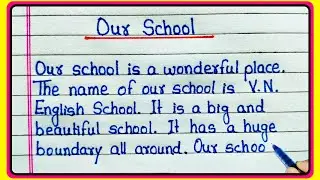 Our School
Our school is a wonderful place.
The name of our school is V.N.
English School. It is a big and
beautiful school. It has a huge
boundary all around. Our schoo